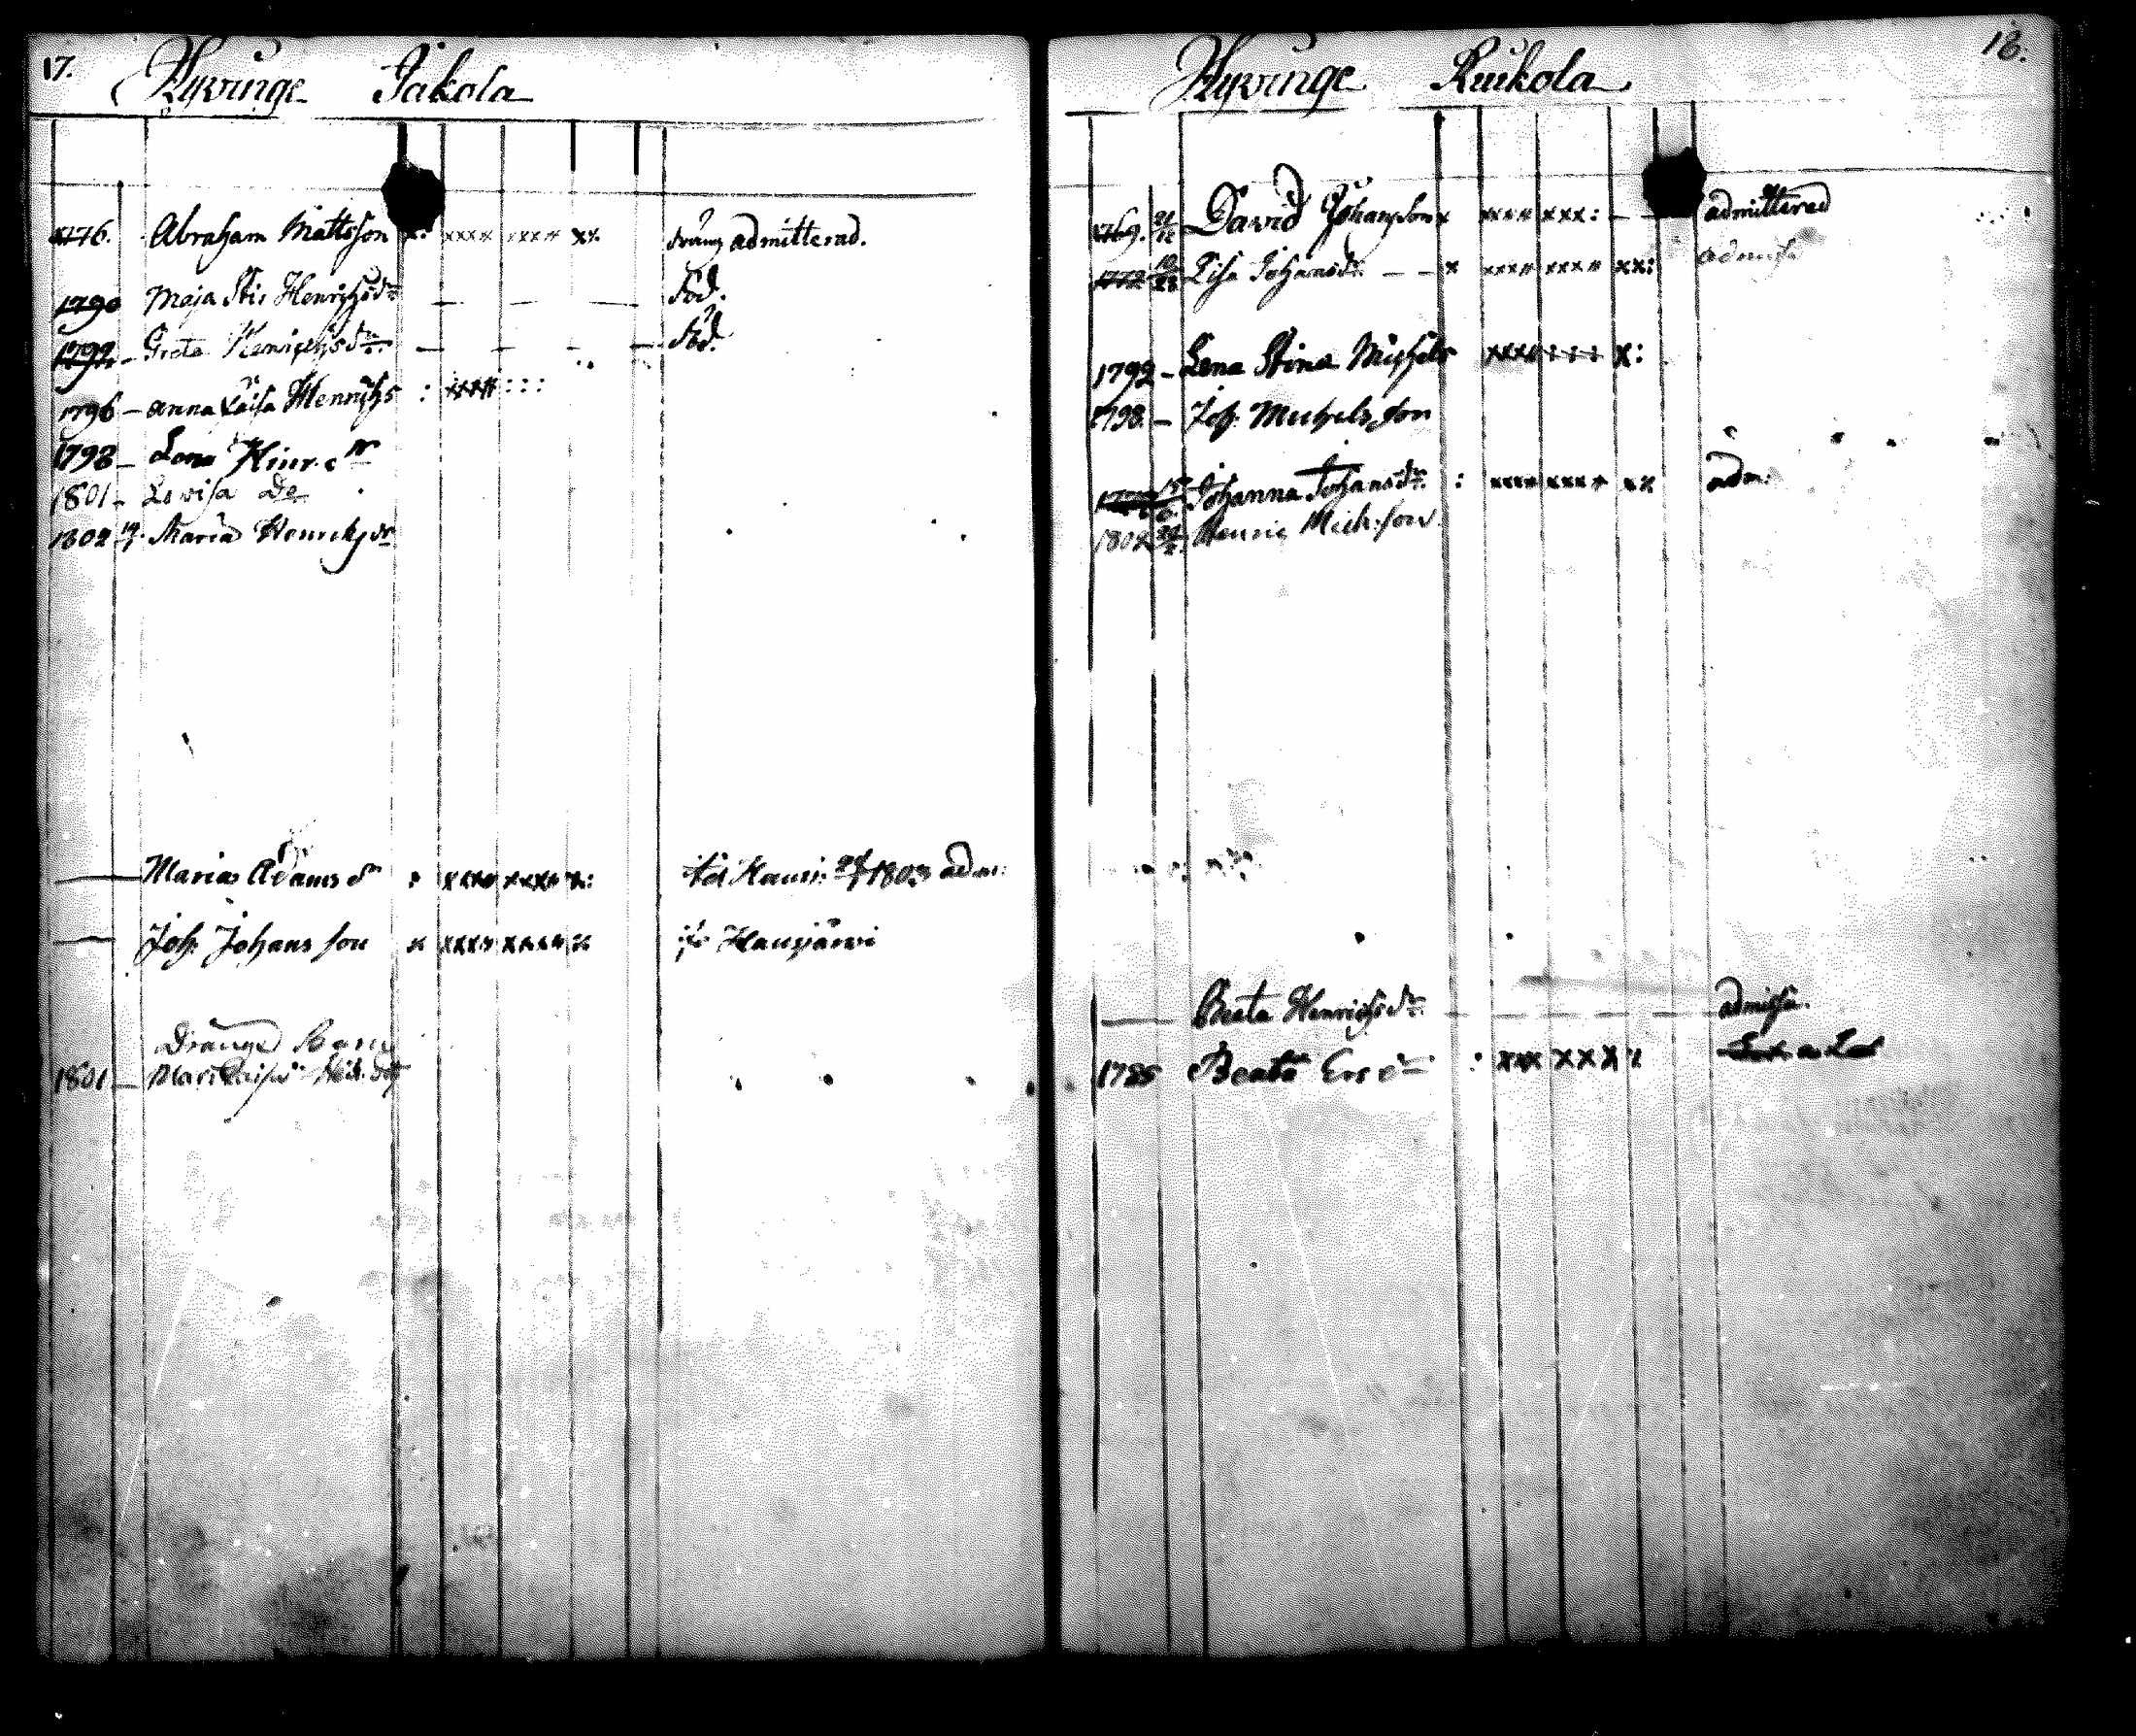 17.
Hyvinge Jakola
1776. Abraham Mattsson x: xxxx xxxx xx. dräng admitterad.
1790 Maja Stis Henrichsdr död.
1792 Greta Henrichsdr död.
1796 Anna Caisa Henrichs : xxxx :::
1798 Lena Hinr. dr
1801 Lovisa De
1802 Maria Henriksdr
Maria Adamsdr : xxxx xxxx x: 1803 adm:
Joh. Johansson x xxxx xxxx x Hausjärvi
Drängs Barn
1801
18.
Hyvinge Kuikola
1769. 21/12 David Johansson x xxxx xxx: admitterad
1772 Lisa Johansdr x xxxx xxxx xx: admissa
1792 Lena Stina Michels xxxx :::: x:
1798. Joh. Michelsson
Johanna Johansdr : xxxx xxxx xx adm:
1802 Henric Mich:son
Beata Henrichsdr admissa.
1785 Beata Ersdr : xxx xxxx